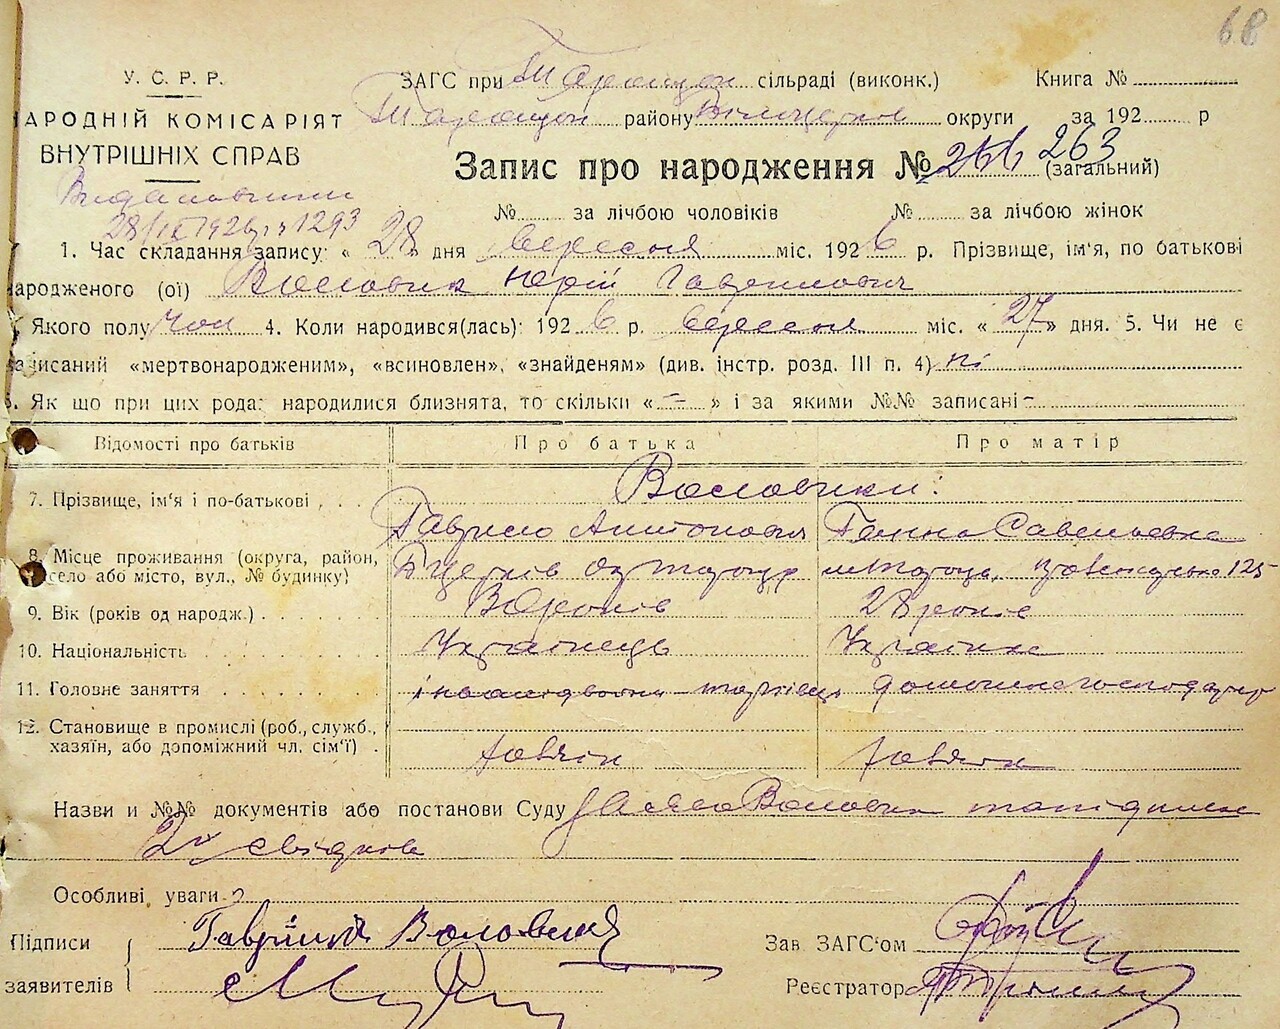 68
У. С. Р. Р.
НАРОДНІЙ КОМІСАРІЯТ
ВНУТРІШНІХ СПРАВ
ЗАГС при Таращан сільраді (виконк.) Книга №
Таращан району Білоцерков округи за 192 р
Запис про народження № 263 (загальний)
28/IX 1926 р № 1293
№ за лічбою чоловіків № за лічбою жінок
1. Час складання запису: « 28 » дня вересня міс. 1926 р. Прізвище, ім'я, по батькові
народженого (ої) Воловик Юрій Гаврилович
Якого полу чол 4. Коли народився(лась): 1926 р. вересня міс. « 27 » дня. 5. Чи не є
записаний «мертвонародженим», «всиновлен», «знайденям» (див. інстр. розд. III п. 4) ні
6. Як що при цих рода: народилися близнята, то скільки « – » і за якими №№ записані –
Відомості про батьків Про батька Про матір
7. Прізвище, ім'я і по-батькові Воловики:
Гаврило Антонович Ганна Савельевна
8. Місце проживання (округа, район,
село або місто, вул., № будинку) Б Церків 125
9. Вік (років од народж.) 28 років
10. Національність Українець Українка
11. Головне заняття
12. Становище в промислі (роб., служб.,
хазяїн, або допоміжний чл. сім'ї) хазяїн
Назви и №№ документів або постанови Суду
2х свідків
Особливі уваги
Підписи Гаврило Воловик Зав ЗАГС'ом
заявителів Реєстратор